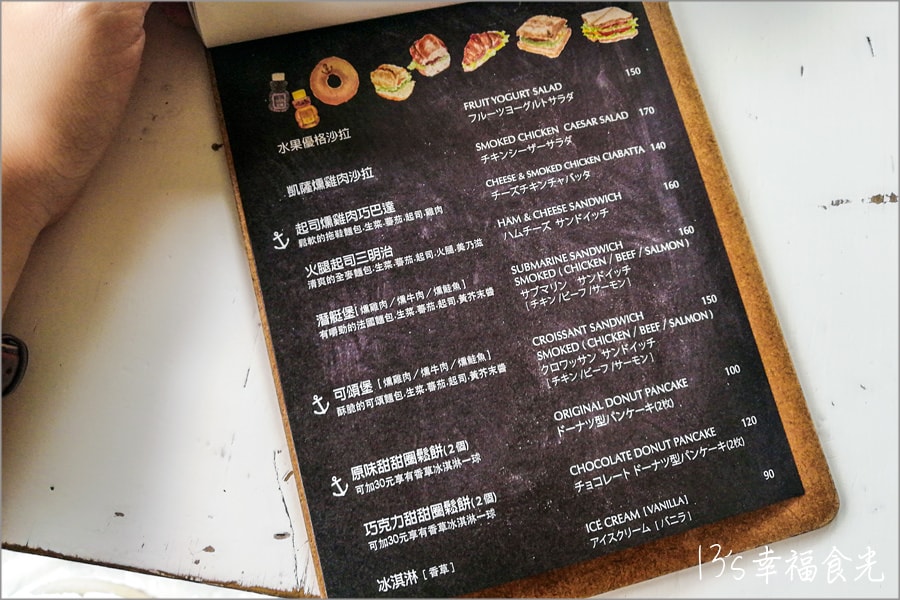 水果優格沙拉
FRUIT YOGURT SALAD 150
フルーツヨーグルトサラダ
凱薩燻雞肉沙拉
SMOKED CHICKEN CAESAR SALAD 170
チキンシーザーサラダ
起司燻雞肉巧巴達
鬆軟的拖鞋麵包.生菜.蕃茄.起司.雞肉
CHEESE & SMOKED CHICKEN CIABATTA 140
チーズチキンチャバッタ
火腿起司三明治
清爽的全麥麵包.生菜.蕃茄.起司.火腿.美乃滋
HAM & CHEESE SANDWICH 160
ハムチーズ サンドイッチ
潛艇堡[燻雞肉/燻牛肉/燻鮭魚]
有嚼勁的法國麵包.生菜.蕃茄.起司.黃芥末醬
SUBMARINE SANDWICH 160
SMOKED ( CHICKEN / BEEF / SALMON )
サブマリン サンドイッチ
[チキン/ビーフ/サーモン]
可頌堡 [燻雞肉/燻牛肉/燻鮭魚]
酥脆的可頌麵包.生菜.蕃茄.起司.黃芥末醬
CROISSANT SANDWICH 150
SMOKED ( CHICKEN / BEEF / SALMON )
クロワッサン サンドイッチ
[チキン/ビーフ/サーモン]
原味甜甜圈鬆餅(2個)
可加30元享有香草冰淇淋一球
ORIGINAL DONUT PANCAKE 100
ドーナツ型パンケーキ(2枚)
巧克力甜甜圈鬆餅(2個)
可加30元享有香草冰淇淋一球
CHOCOLATE DONUT PANCAKE 120
チョコレート ドーナツ型パンケーキ(2枚)
冰淇淋 [香草]
ICE CREAM [VANILLA] 90
アイスクリーム [バニラ]
13's幸福食光